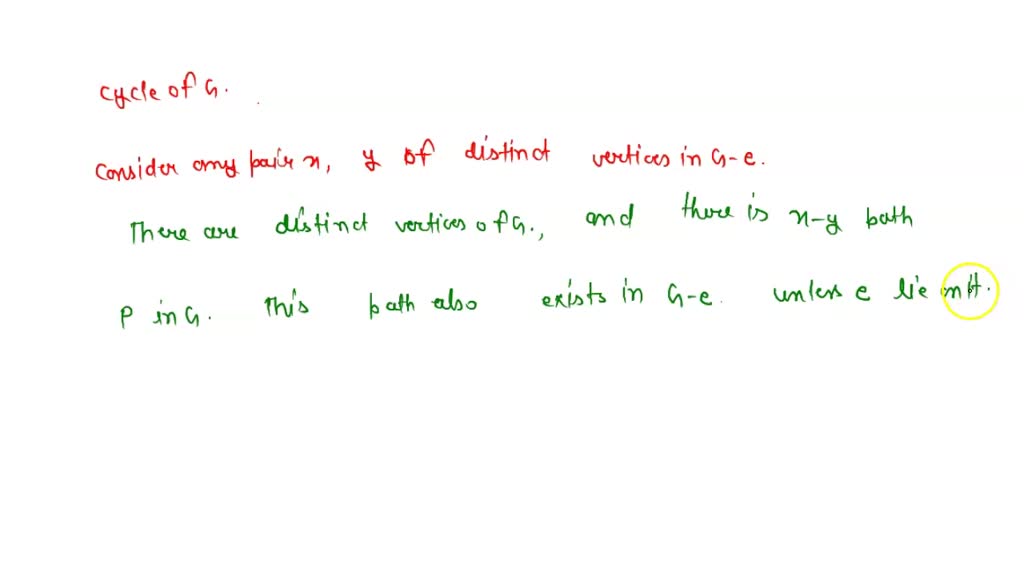 cycle of G.
consider any pair x, y of distinct vertices in G-e.
There are distinct vertices of G., and there is x-y path
P in G. This path also exists in G-e. unless e lie on it.